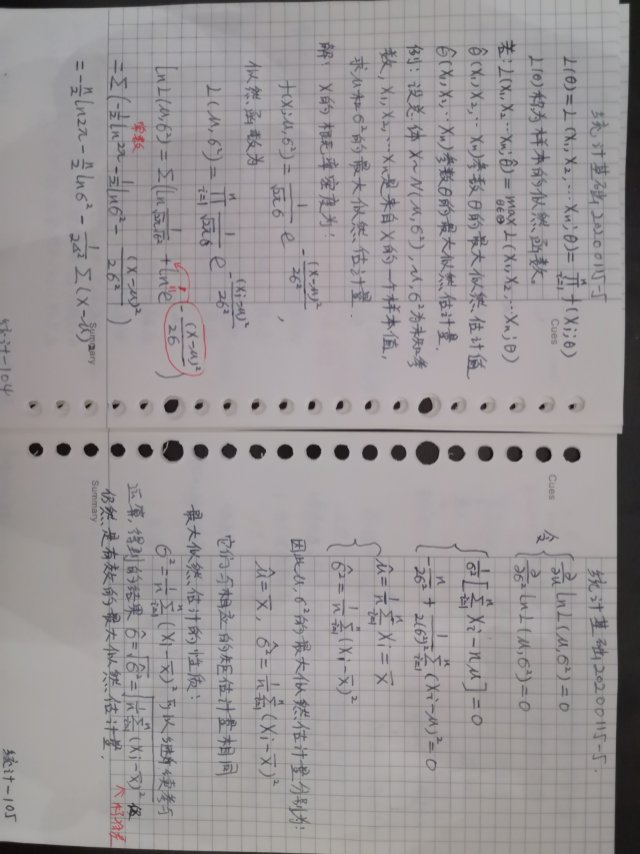 统计基础 20200115-5
Cues
L(θ)=L(X₁,X₂,…Xn;θ)=∏ⁿᵢ₌₁ f(Xᵢ;θ)
L(θ)称为样本的似然函数。
若:L(X₁,X₂…Xn;θ̂)=max θ∈Θ L(X₁,X₂,…Xn;θ)
θ̂(X₁,X₂,…Xn)参数θ的最大似然估计值
θ̂(X₁,X₂,…Xn)参数θ的最大似然估计量.
例:设总体X~N(μ,σ²),μ,σ²为未知参
数,X₁,X₂,…Xn是来自X的一个样本值,
求μ和σ²的最大似然估计量.
解:X的概率密度为:
f(X;μ,σ²)=1/(√2π σ) e^(-(X-μ)²/2σ²),
似然函数为
L(μ,σ²)=∏ⁿᵢ₌₁ 1/(√2π σ) e^(-(Xᵢ-μ)²/2σ²)
lnL(μ,σ²)=Σ(ln 1/√2πσ² + ln e^(-(X-μ)²/2σ))
常数
=Σ(-½ln2π-½lnσ²-(X-μ)²/2σ²)
=-n/2 ln2π-n/2 lnσ²-1/2σ² Σ(X-μ)²
Summary
统计-104
统计基础 20200115-5.
Cues
令{∂/∂μ lnL(μ,σ²)=0
∂/∂σ² lnL(μ,σ²)=0
{1/σ²[Σⁿᵢ₌₁ Xᵢ-nμ]=0
-n/2σ²+1/2(σ²)² Σⁿᵢ₌₁(Xᵢ-μ)²=0
{μ̂=1/n Σⁿᵢ₌₁ Xᵢ=X̄
σ̂²=1/n Σⁿᵢ₌₁(Xᵢ-X̄)²
因此μ,σ²的最大似然估计量分别为:
μ̂=X̄, σ̂²=1/n Σⁿᵢ₌₁(Xᵢ-X̄)²
它们与相应的矩估计量相同
最大似然估计的性质:
σ̂²=1/n Σⁿᵢ₌₁(Xᵢ-X̄)²可以继续参与
运算,得到的结果σ̂=√σ̂²=√(1/n Σⁿᵢ₌₁(Xᵢ-X̄)²)
仍然是有效的最大似然估计量.
Summary
统计-105